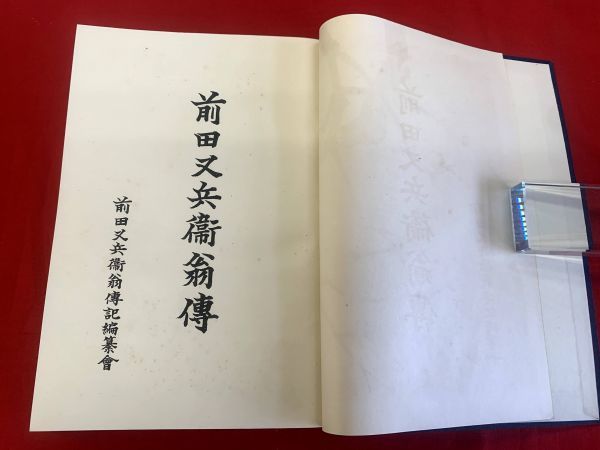 前田又兵衞翁傳
前田又兵衞翁傳記編纂會